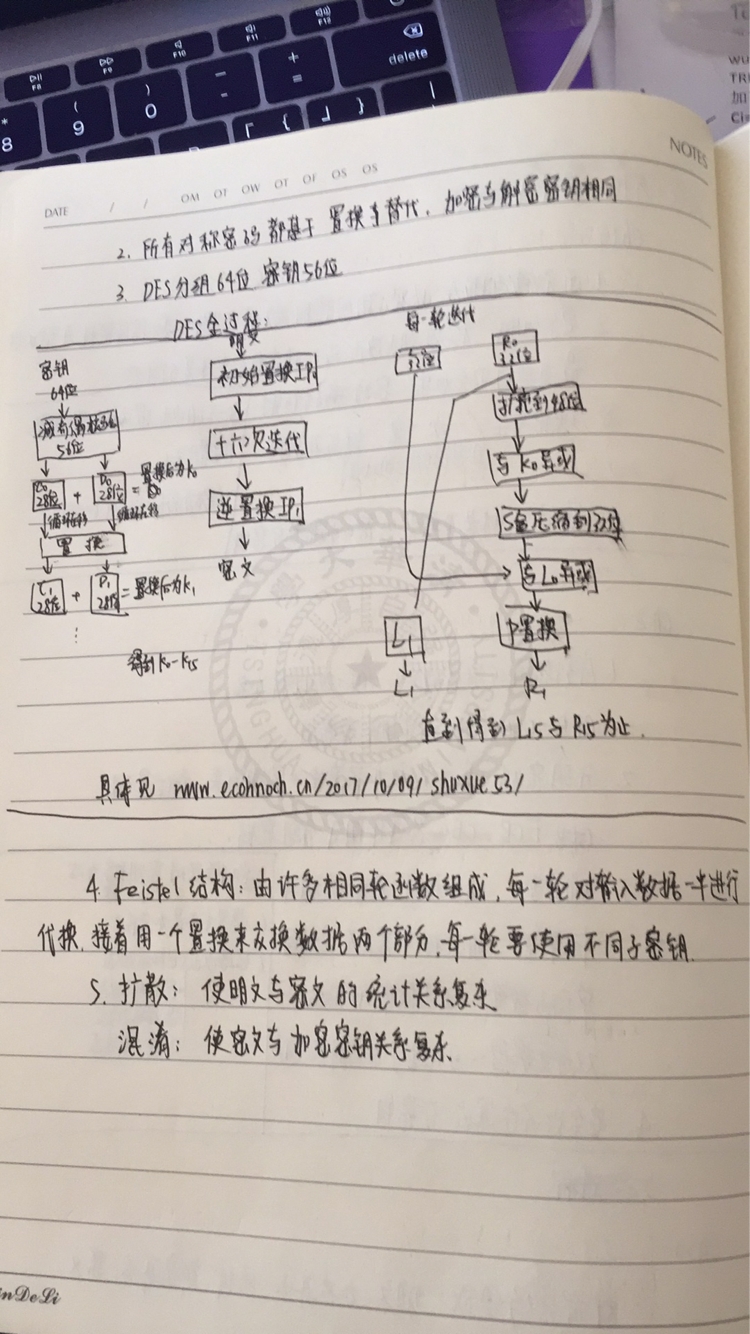 F8
F9
F10
F11
F12
delete
*
8
(
9
)
0
-
+
=
{
}
加
NOTES
DATE / /
2. 所有对称密码都基于置换与替代，加密与解密密钥相同
3. DES分组64位 密钥56位
DES全过程：
密钥
64位
56位
C0
28位
+
D0
28位
=
置换后为K0
循环左移
循环左移
置换
C1
28位
+
D1
28位
=置换后为K1
⋮
得到K0-K15
明文
初始置换IP
十六次迭代
逆置换IP
密文
每一轮迭代
32位
R0
32位
扩充到48位
与K0异或
S盒压缩到32位
与L0异或
P置换
R1
L1
L1
直到得到L15与R15为止.
具体见 www.ecohnoch.cn/2017/10/09/shuxue53/
4. Feistel结构：由许多相同轮函数组成，每一轮对输入数据一半进行
代换，接着用一个置换来交换数据两个部分，每一轮要使用不同子密钥.
5. 扩散：使明文与密文的统计关系复杂
混淆：使密文与加密密钥关系复杂
inDeLi